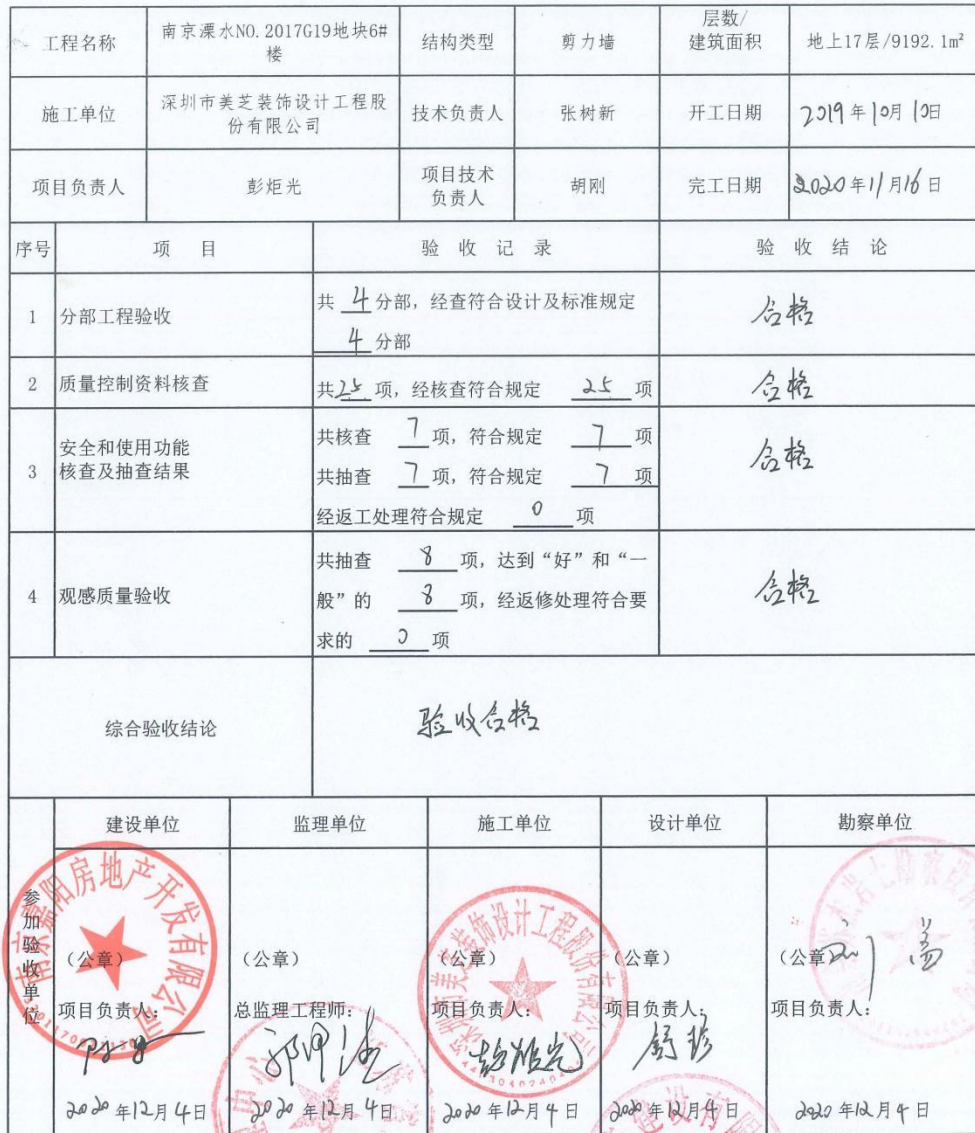 工程名称
南京溧水NO.2017G19地块6#
楼
结构类型
剪力墙
层数/
建筑面积
地上17层/9192.1m²
施工单位
深圳市美芝装饰设计工程股
份有限公司
技术负责人
张树新
开工日期
2019年10月10日
项目负责人
彭炬光
项目技术
负责人
胡刚
完工日期
2020年11月16日
序号
项 目
验 收 记 录
验 收 结 论
1
分部工程验收
共 4 分部，经查符合设计及标准规定
4 分部
合格
2
质量控制资料核查
共 25 项，经核查符合规定 25 项
合格
3
安全和使用功能
核查及抽查结果
共核查 7 项，符合规定 7 项
共抽查 7 项，符合规定 7 项
经返工处理符合规定 0 项
合格
4
观感质量验收
共抽查 8 项，达到“好”和“一
般”的 8 项，经返修处理符合要
求的 0 项
合格
综合验收结论
验收合格
参加验收单位
建设单位
监理单位
施工单位
设计单位
勘察单位
南京嘉阳房地产开发有限公司
深圳市美芝装饰设计工程股份有限公司
（公章）
（公章）
（公章）
（公章）
（公章）
项目负责人：
总监理工程师：
项目负责人：
项目负责人：
项目负责人：
彭炬光
2020年12月4日
2020年12月4日
2020年12月4日
2020年12月4日
2020年12月4日